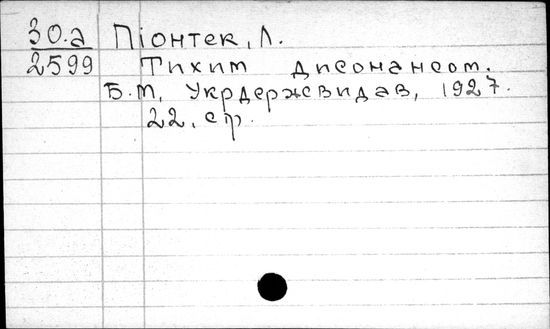 30.а Піонтек, Л.
2599 Тихим дисонансом.
Б.М, Укрдержвидав, 1927.
22, ср.